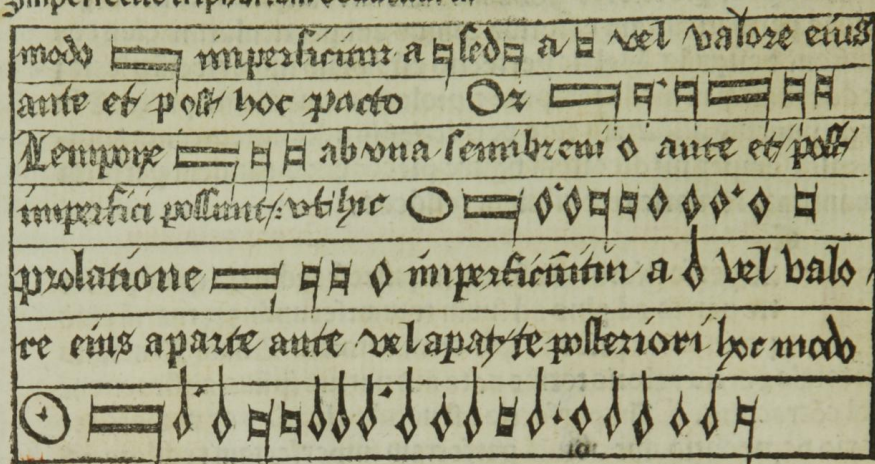 modo imperficitur a sed a vel valore eius
ante et post hoc pacto
Tempore ab vna semibreui ante et post
imperfici possunt: vt hic
prolatione imperficiũtur a vel valo
re eius aparte ante vel aparte posteriori hoc modo